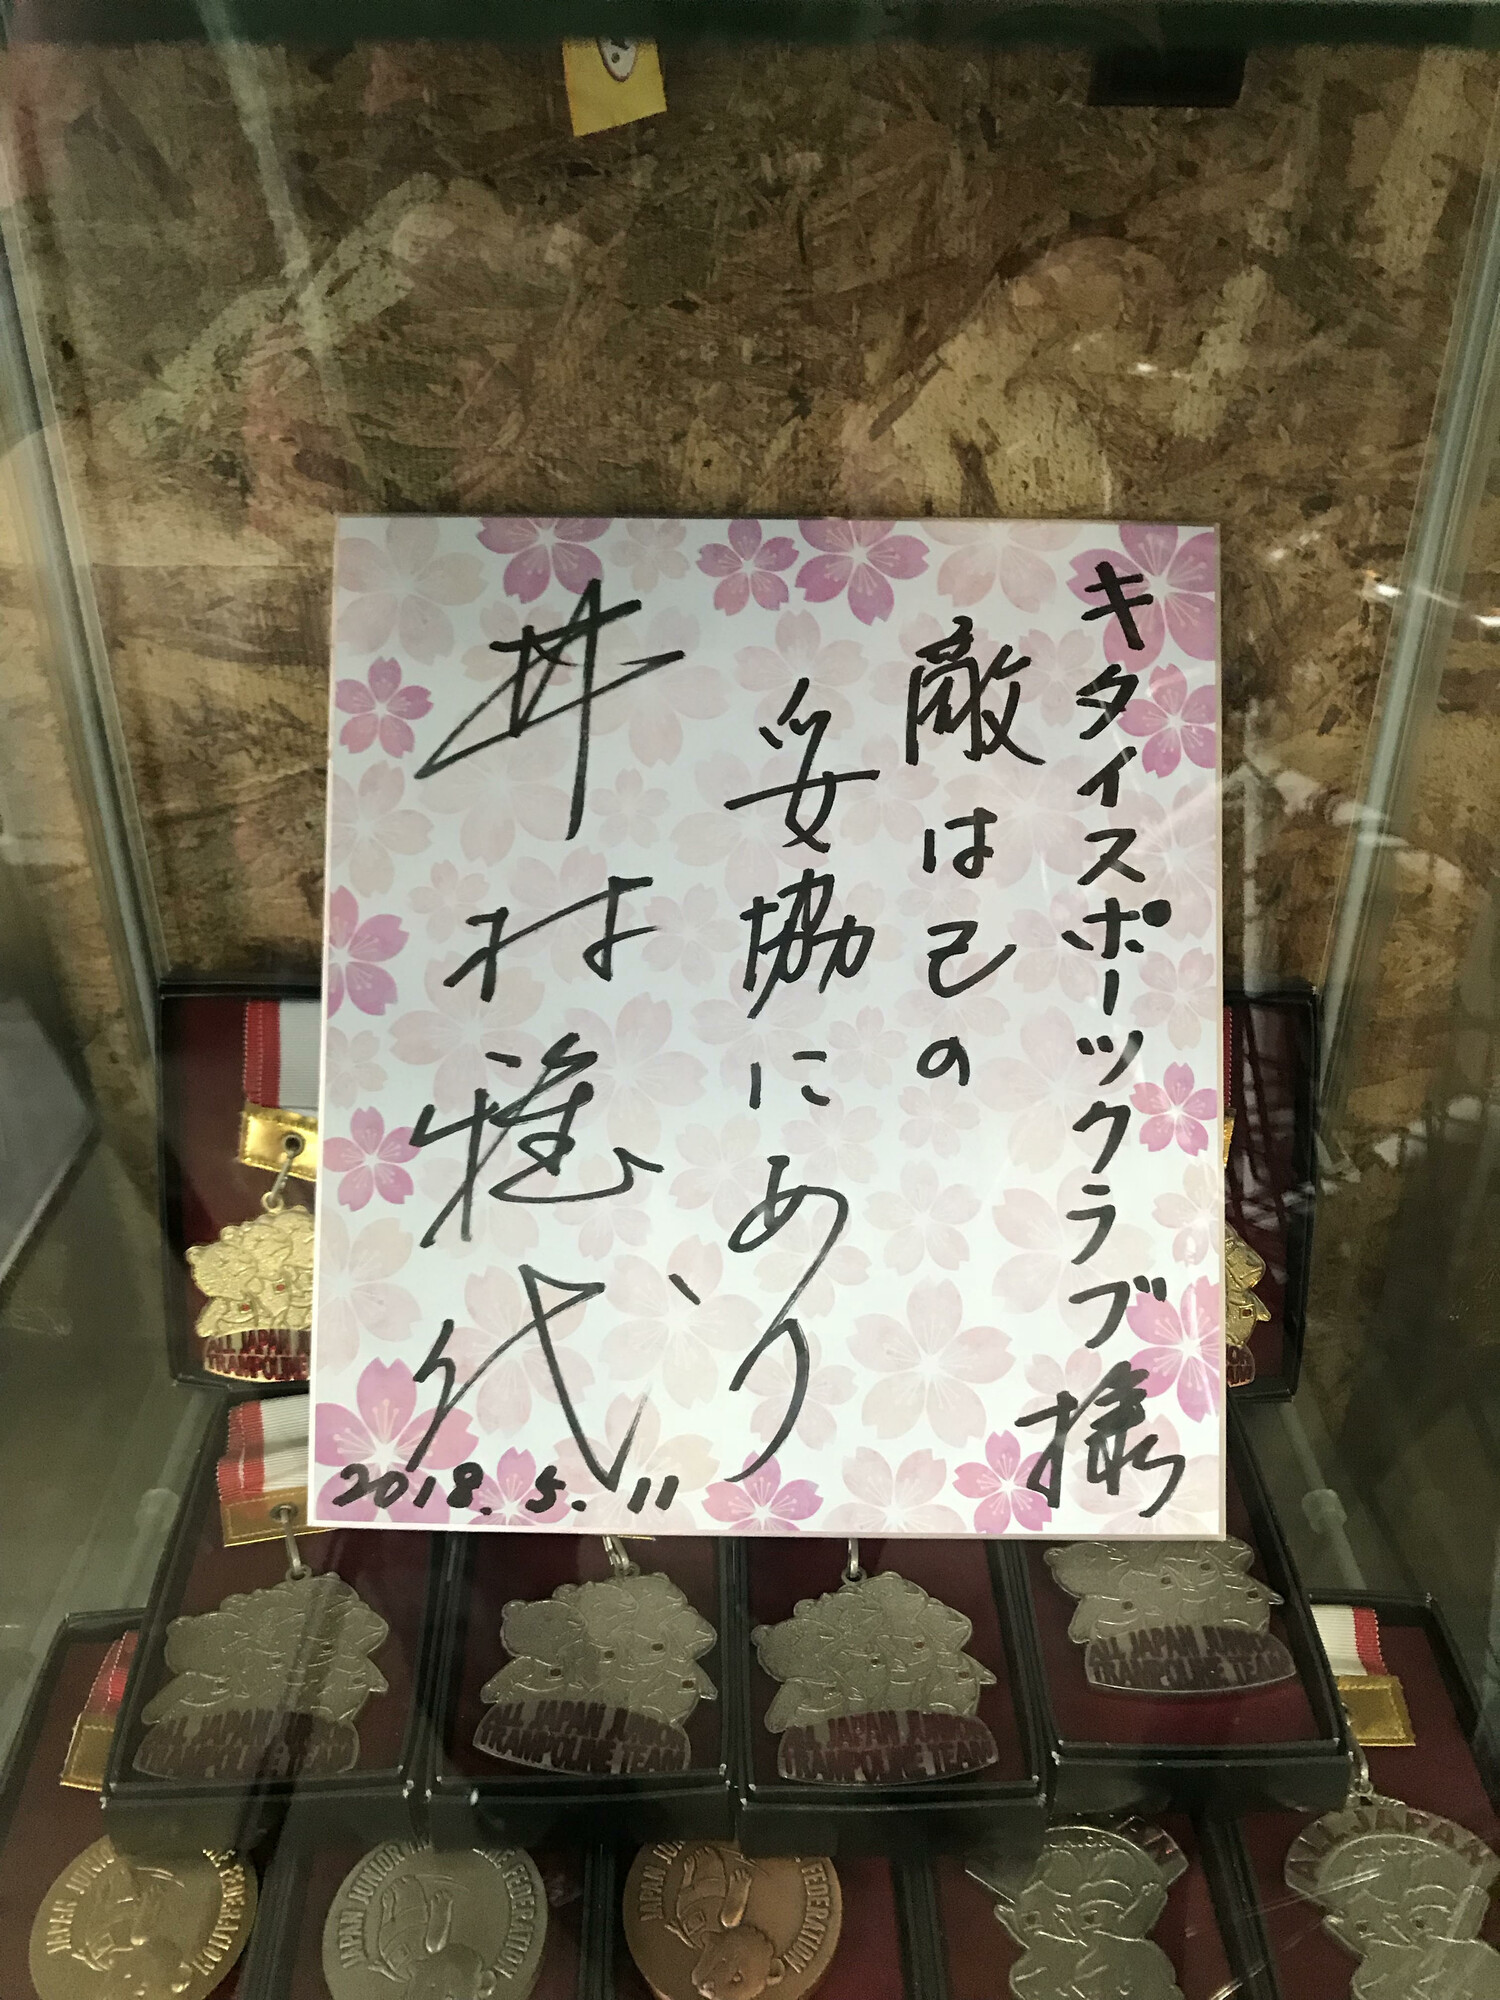 キタイスポーツクラブ様
敵は己の
妥協にあり
井村雅代
2018.5.11
ALL JAPAN
TRAMPOLINE
ALL JAPAN JUNIOR
TRAMPOLINE TEAM
ALL JAPAN JUNIOR
TRAMPOLINE TEAM
ALL JAPAN JUNIOR
TRAMPOLINE TEAM
ALL JAPAN JUNIOR
TRAMPOLINE TEAM
JAPAN JUNIOR
JAPAN JUNIOR
FEDERATION
JAPAN
FEDERATION
ALL JAPAN